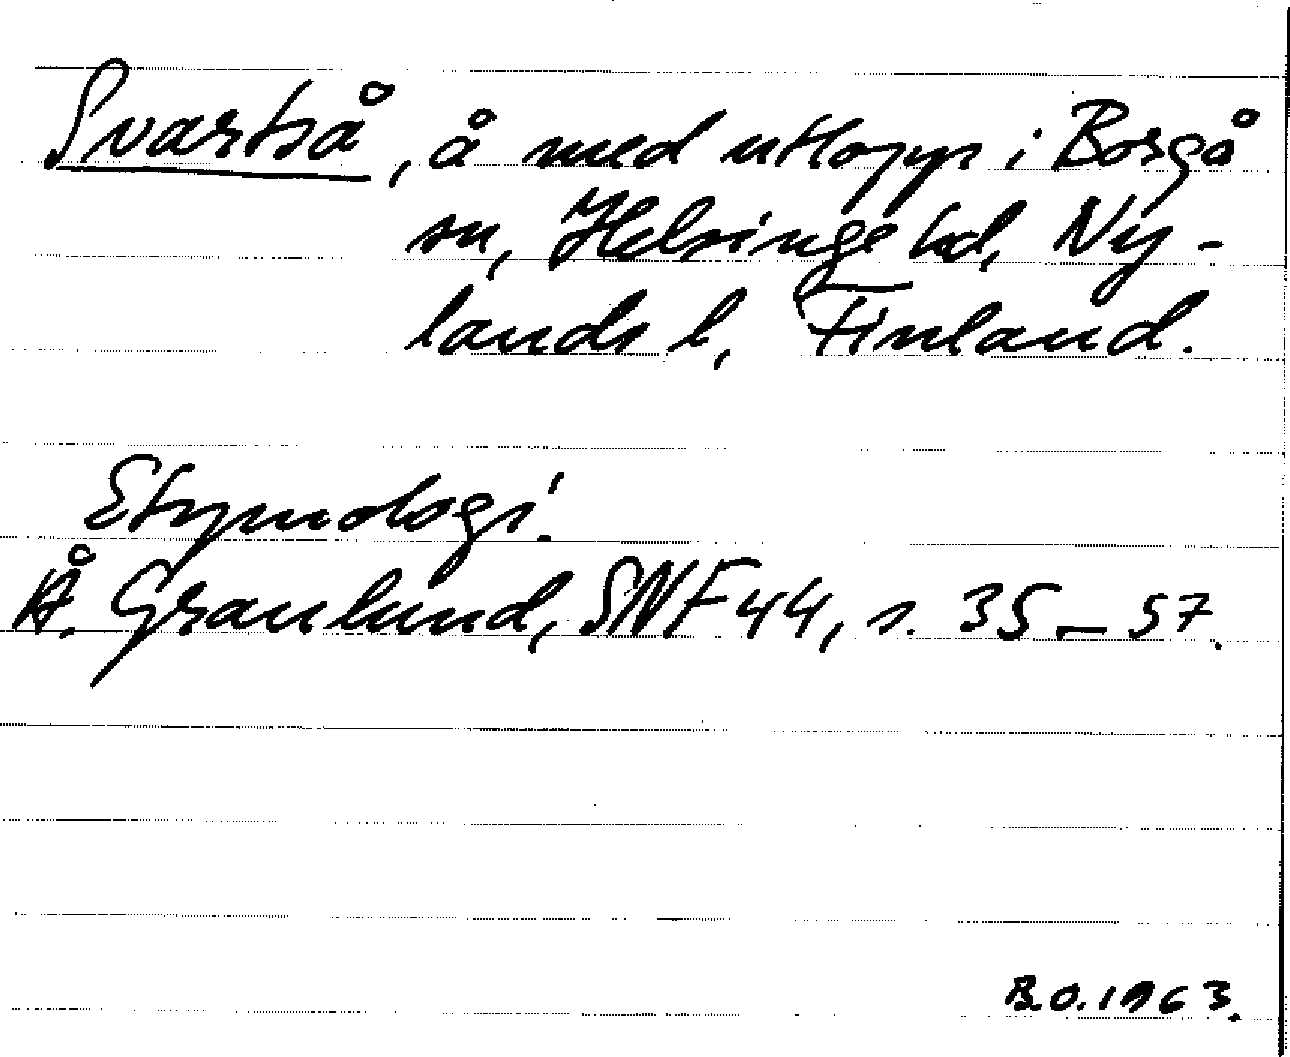 Svartså, å med utlopp i Borgå
sn, Helsinge hd, Ny-
lands l, Finland.
Etymologi.
Å. Granlund, SNF 44, s. 35-57.
B.O. 1963.